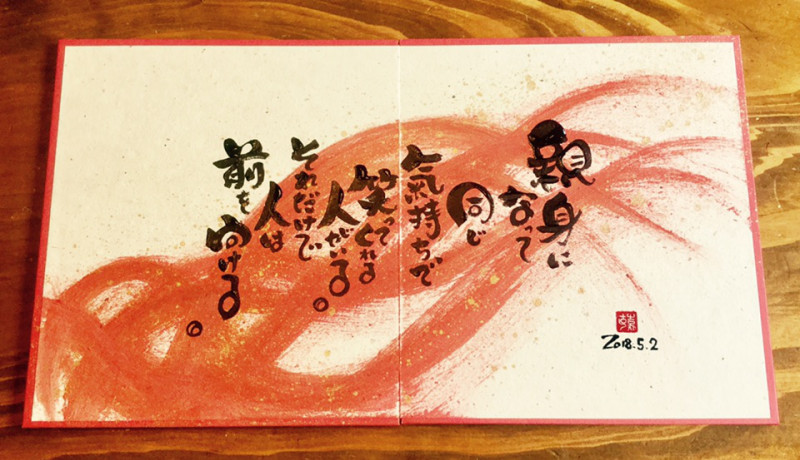 親身に
なって
同じ
気持ちで
笑って
くれる
人がいる。
それだけで
人は
前を
向ける。
2018.5.2